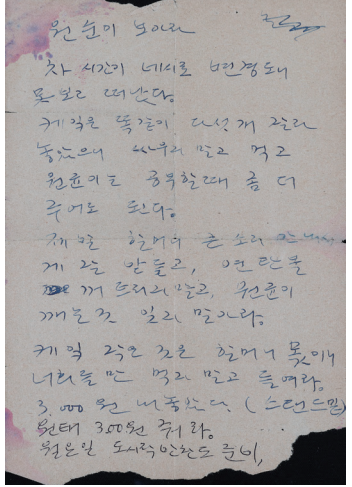 원순이 보아라
차 시간이 네시로 변경되어
못보고 떠난다.
케익은 똑같이 다섯개 잘라
놓았으니 싸우지 말고 먹고
원윤이는 공부할때 좀 더
주어도 된다.
제발 할머니 큰 소리 안 나시
게 잘 받들고, 연탄불
꺼 뜨리지 말고, 원윤이
깨는것 잊지 말아라.
케익 작은 것은 할머니 몫이니
너희들만 먹지 말고 들여라.
3,000 원 내놓았다. (스탠드밑)
원태 300원 줘라.
월요일 도시락 반찬도 준비,